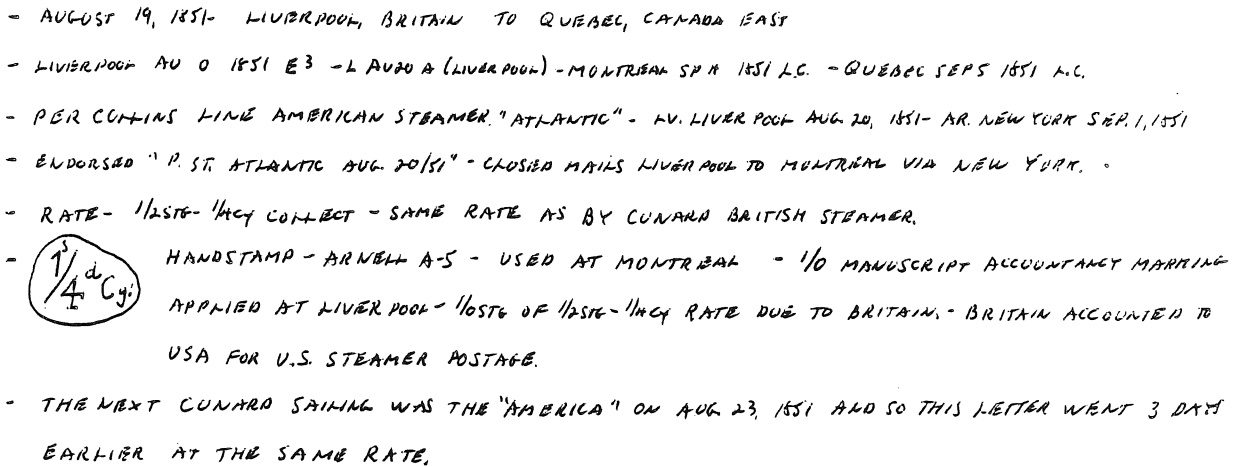 - AUGUST 19, 1851- LIVERPOOL, BRITAIN TO QUEBEC, CANADA EAST
- LIVERPOOL AU 0 1851 E3 - L AU20 A (LIVERPOOL) - MONTREAL SP 1851 L.C. - QUEBEC SEP 5 1851 L.C.
- PER COLLINS LINE AMERICAN STEAMER "ATLANTIC" - LV. LIVERPOOL AUG. 20, 1851- AR. NEW YORK SEP. 1, 1851
- ENDORSED "P. ST. ATLANTIC AUG. 20/51" - CLOSED MAILS LIVERPOOL TO MONTREAL VIA NEW YORK.
- RATE- 1/2STG- 1/4CY COLLECT - SAME RATE AS BY CUNARD BRITISH STEAMER.
- 1s/4d Cy. HANDSTAMP - ARNELL A-5 - USED AT MONTREAL - 1/0 MANUSCRIPT ACCOUNTANCY MARKING
APPLIED AT LIVERPOOL - 1/0STG OF 1/2STG - 1/4CY RATE DUE TO BRITAIN. - BRITAIN ACCOUNTED TO
USA FOR U.S. STEAMER POSTAGE.
- THE NEXT CUNARD SAILING WAS THE "AMERICA" ON AUG 23, 1851 AND SO THIS LETTER WENT 3 DAYS
EARLIER AT THE SAME RATE.